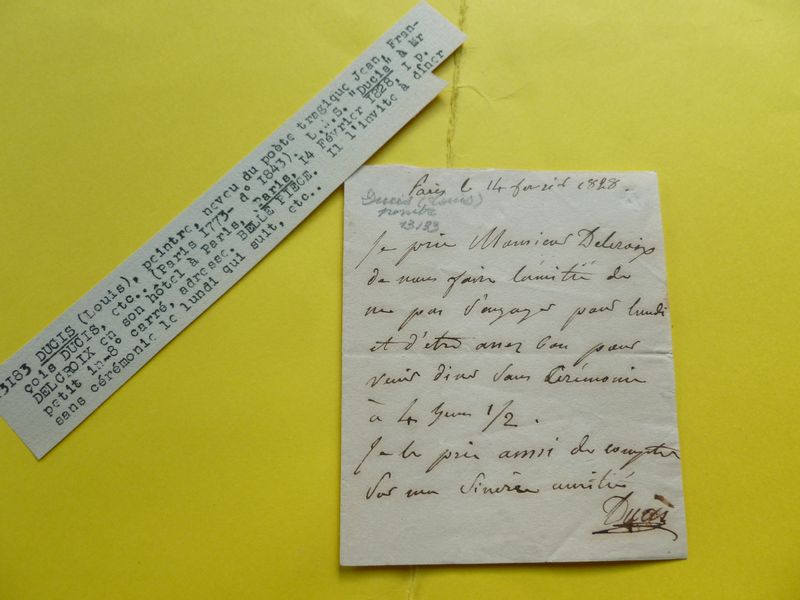 13183 DUCIS (Louis), peintre, neveu du poète tragique Jean, Fran-
çois DUCIS, etc.. (Paris 1773- d° 1843). L.A.S. "Ducis" à Mr
DELCROIX en son hôtel à Paris, Paris, 14 Février 1828, I p.
petit in-8° carré, adresse. BELLE PIECE. Il l'invite à dîner
sans cérémonie le lundi qui suit, etc..
Paris le 14 fevrier 1828.
Ducis (Louis)
peintre
13183
Je prie Monsieur Delcroix
de nous faire l'amitié de
ne pas s'engager pour lundi
et d'etre assez bon pour
venir diner sans Cérémonie
à 4 heures 1/2.
Je le prie aussi de compter
sur ma Sincère amitié
Ducis